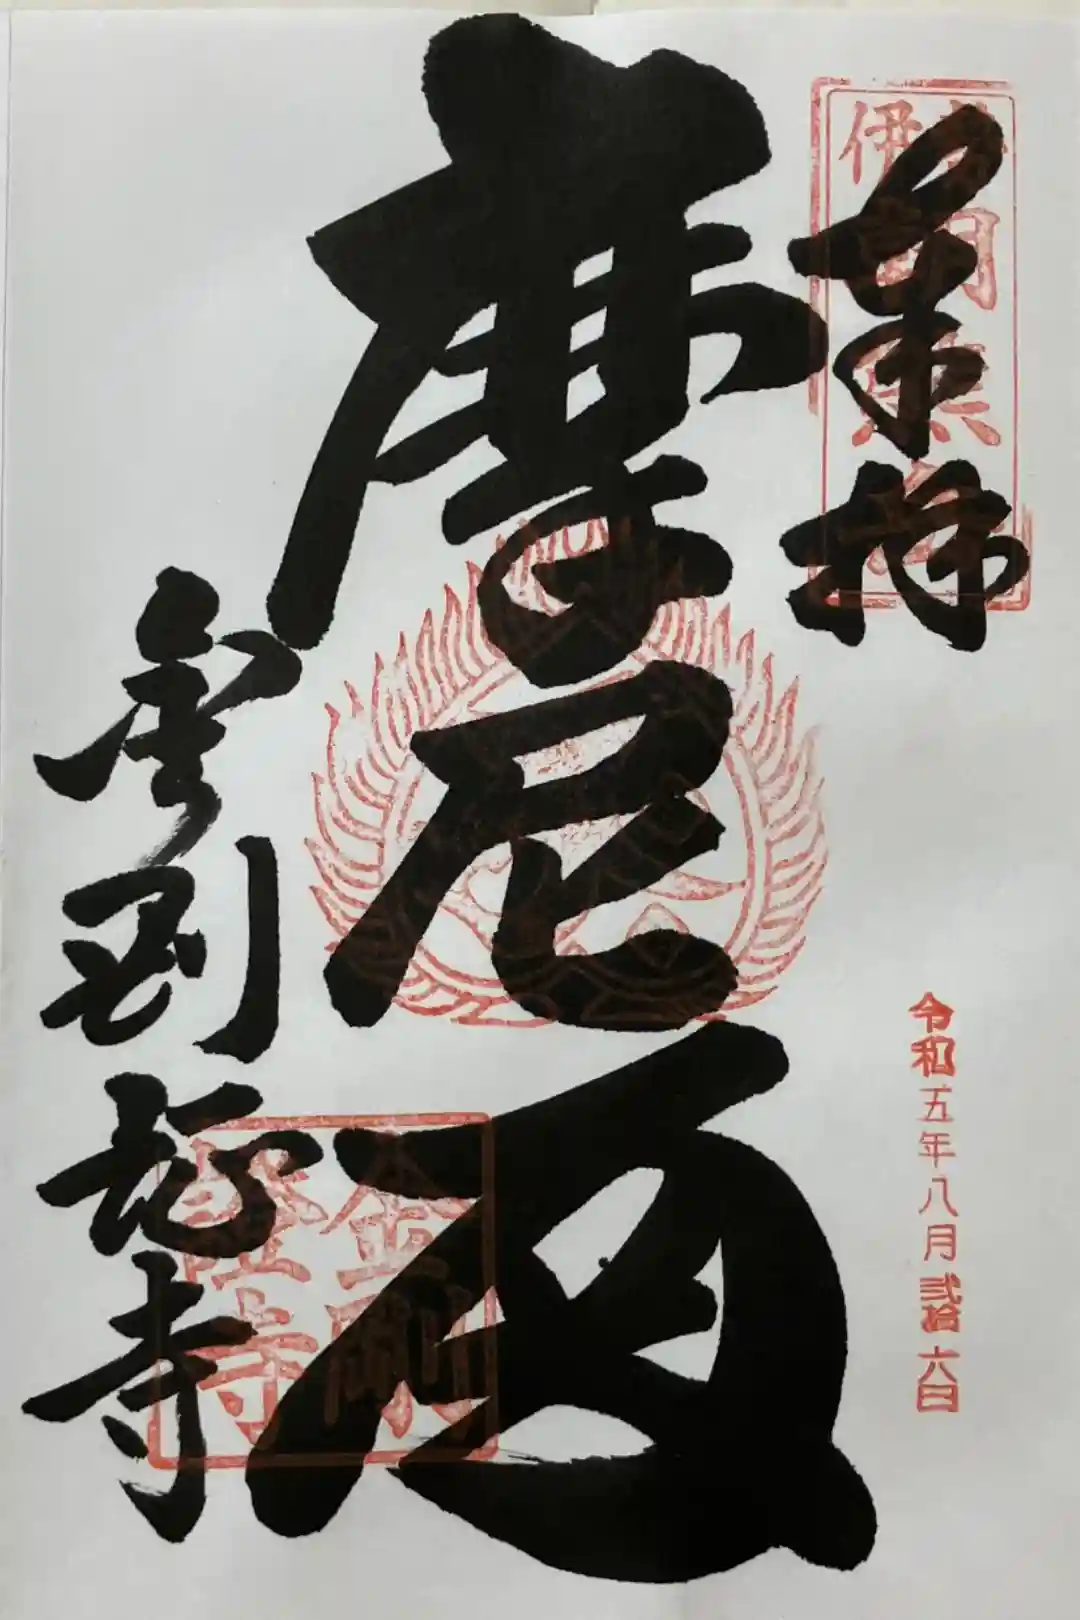 奉拝
伊勢
朝熊岳
令和五年八月弐拾六日
摩尼殿
金剛證寺
金剛
證寺